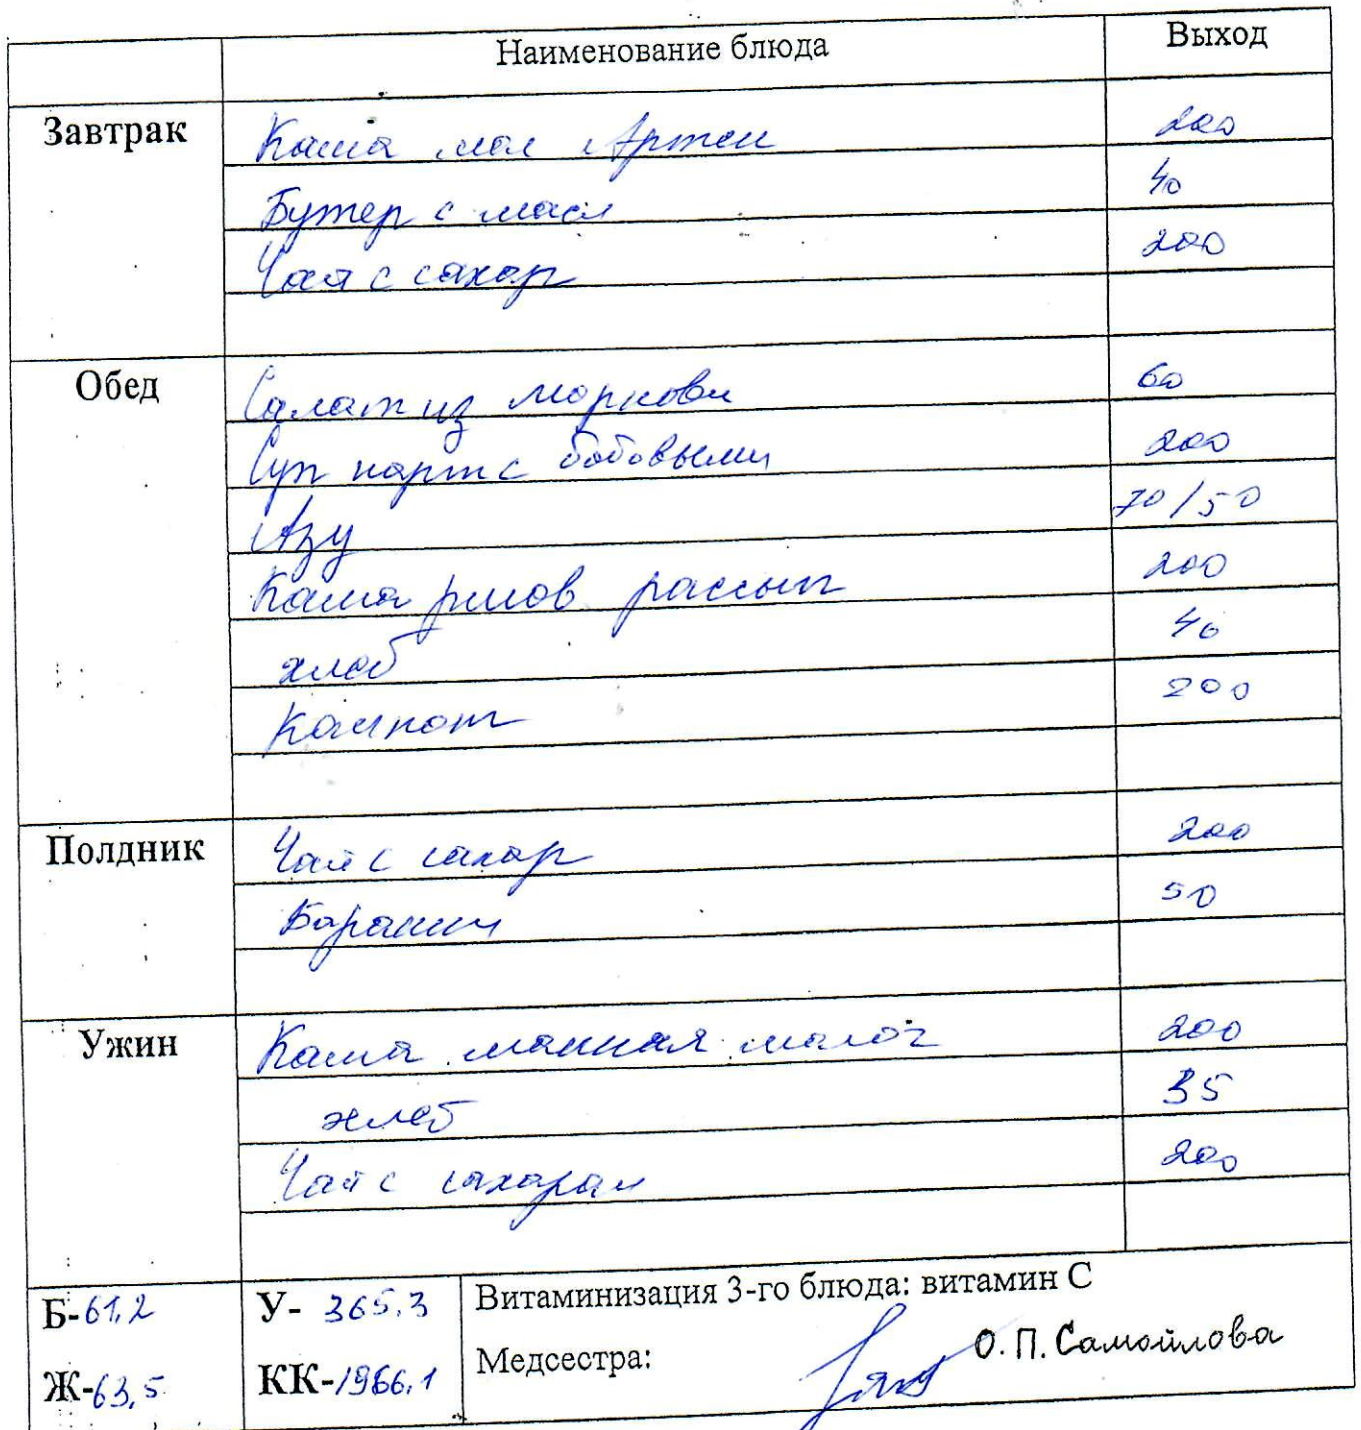 Наименование блюда Выход
Завтрак Каша мол Артек 200
Бутер с масл 40
Чай с сахар 200
Обед Салат из моркови 60
Суп карт с бобовыми 200
Азу 70/50
Каша рисов рассып 200
хлеб 40
Компот 200
Полдник Чай с сахар 200
Баранки 50
Ужин Каша манная молоч 200
хлеб 35
Чай с сахаром 200
Б-61,2 У- 365,3 Витаминизация 3-го блюда: витамин С
Ж-63,5 КК-1966,1 Медсестра: О.П.Самойлова